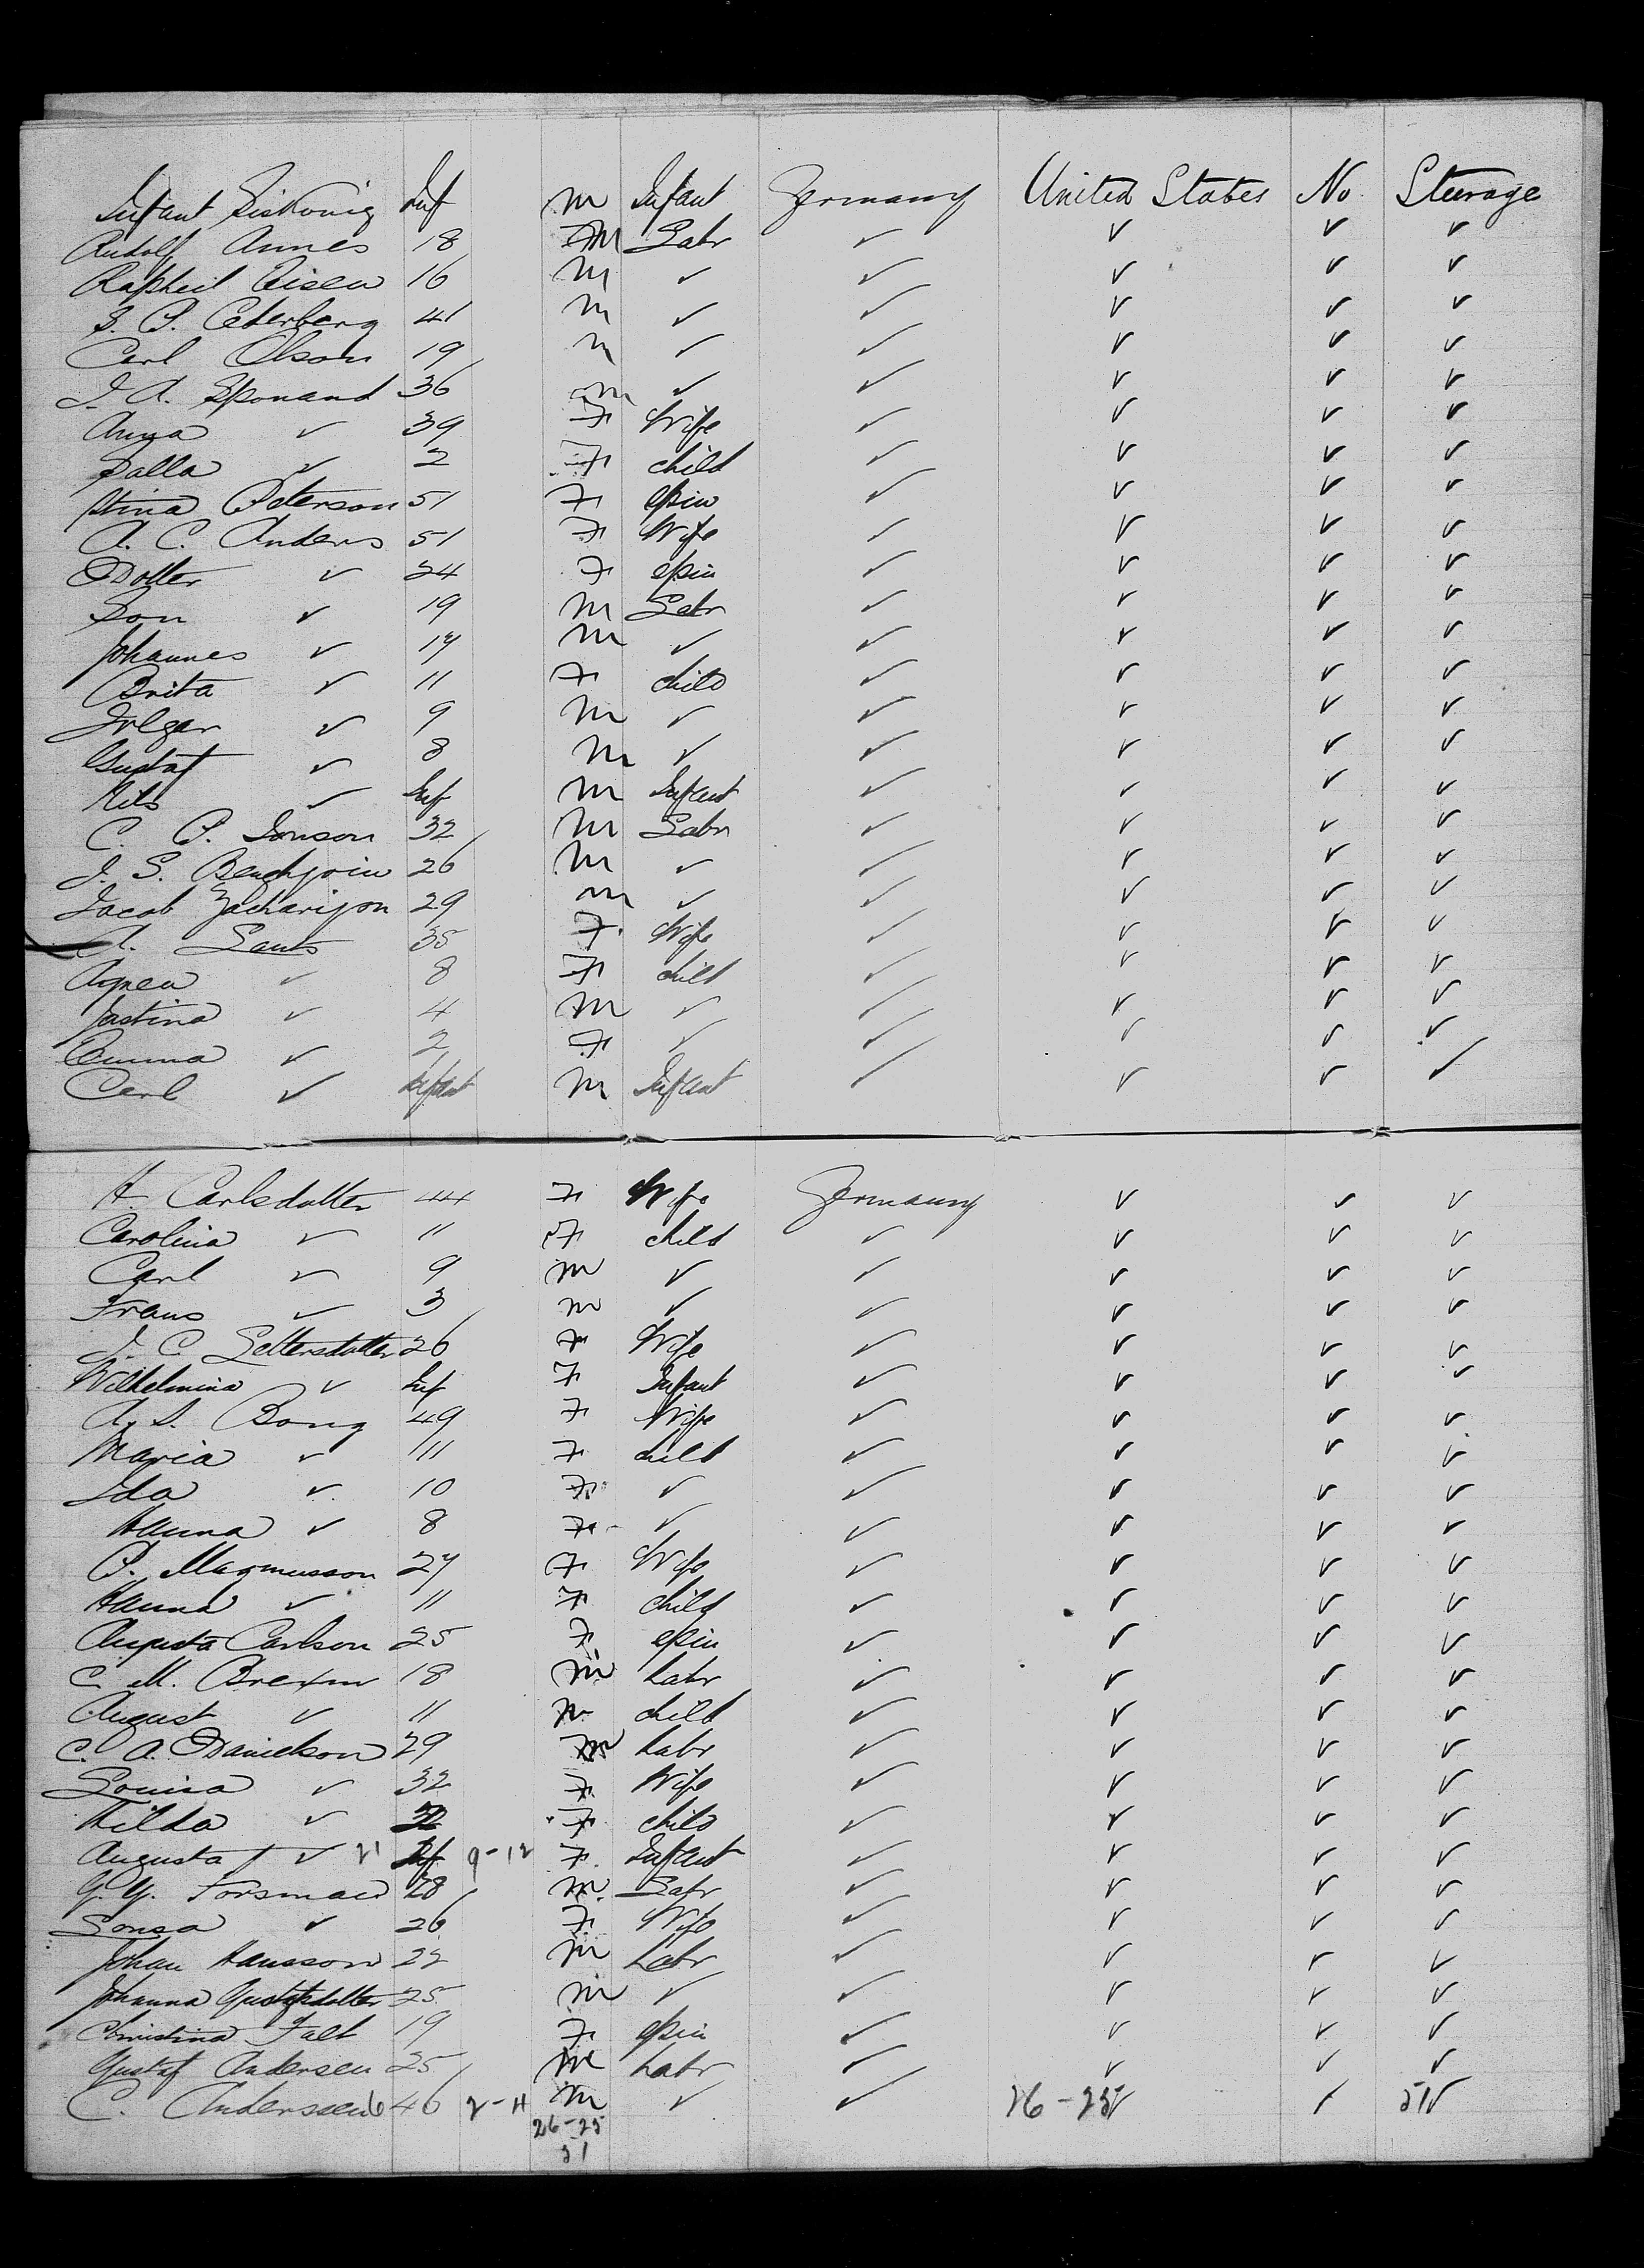 Infant Inf m Infant Germany United States No. Steerage
Rudolf Annes 18 M Labr ✓ ✓ ✓ ✓
Eisen 16 M ✓ ✓ ✓ ✓ ✓
S. P. Cederberg 41 m ✓ ✓ ✓ ✓ ✓
Carl Olson 19 m ✓ ✓ ✓ ✓ ✓
J. A. Sponand 36 m ✓ ✓ ✓ ✓ ✓
Anna ✓ 39 F Wife ✓ ✓ ✓ ✓
Salla ✓ 2 F child ✓ ✓ ✓ ✓
Stina Peterson 51 F spin ✓ ✓ ✓ ✓
A. C. Anders 51 F Wife ✓ ✓ ✓ ✓
Dotter ✓ 24 F spin ✓ ✓ ✓ ✓
Son ✓ 19 M Labr ✓ ✓ ✓ ✓
Johannes ✓ 17 M ✓ ✓ ✓ ✓ ✓
Brita ✓ 11 F child ✓ ✓ ✓ ✓
✓ 9 M ✓ ✓ ✓ ✓ ✓
Gustaf ✓ 8 M ✓ ✓ ✓ ✓ ✓
Nils ✓ Inf M Infant ✓ ✓ ✓ ✓
C. P. Jonson 32 M Labr ✓ ✓ ✓ ✓
J. S. 26 M ✓ ✓ ✓ ✓ ✓
Jacob Zacharison 29 m ✓ ✓ ✓ ✓ ✓
A. 35 F Wife ✓ ✓ ✓ ✓
✓ 8 F child ✓ ✓ ✓ ✓
Justina ✓ 4 M ✓ ✓ ✓ ✓ ✓
Emma ✓ 2 F ✓ ✓ ✓ ✓ ✓
Carl ✓ Infant M Infant ✓ ✓ ✓ ✓
H. Carlsdotter 44 F Wife Germany ✓ ✓ ✓
Carolina ✓ 11 F child ✓ ✓ ✓ ✓
Carl ✓ 9 m ✓ ✓ ✓ ✓ ✓
Frans ✓ 3 m ✓ ✓ ✓ ✓ ✓
J. C. 26 F Wife ✓ ✓ ✓ ✓
Wilhelmina ✓ Inf F Infant ✓ ✓ ✓ ✓
A. S. Bong 49 F Wife ✓ ✓ ✓ ✓
Maria ✓ 11 F child ✓ ✓ ✓ ✓
Ida ✓ 10 F ✓ ✓ ✓ ✓ ✓
Hanna ✓ 8 F ✓ ✓ ✓ ✓ ✓
P. Magnusson 27 F Wife ✓ ✓ ✓ ✓
Hanna ✓ 11 F child ✓ ✓ ✓ ✓
Augusta Carlson 25 F spin ✓ ✓ ✓ ✓
C. M. 18 m Labr ✓ ✓ ✓ ✓
August ✓ 11 m child ✓ ✓ ✓ ✓
C. A. Danielson 29 m Labr ✓ ✓ ✓ ✓
Louisa ✓ 32 F Wife ✓ ✓ ✓ ✓
Hilda ✓ F child ✓ ✓ ✓ ✓
Augusta ✓ 21 Inf 9-12 F Infant ✓ ✓ ✓ ✓
Forsman 28 m Labr ✓ ✓ ✓ ✓
✓ 26 F Wife ✓ ✓ ✓ ✓
Johan Hansson 22 m Labr ✓ ✓ ✓ ✓
Johanna Gustafsdotter 25 m ✓ ✓ ✓ ✓ ✓
Christina Falt 19 F spin ✓ ✓ ✓ ✓
Gustaf Andersen 25 m Labr ✓ ✓ ✓ ✓
C. Anderssen 6 46 2-11 m ✓ ✓ 26-25 ✓ ✓ 51 ✓
26-25
51